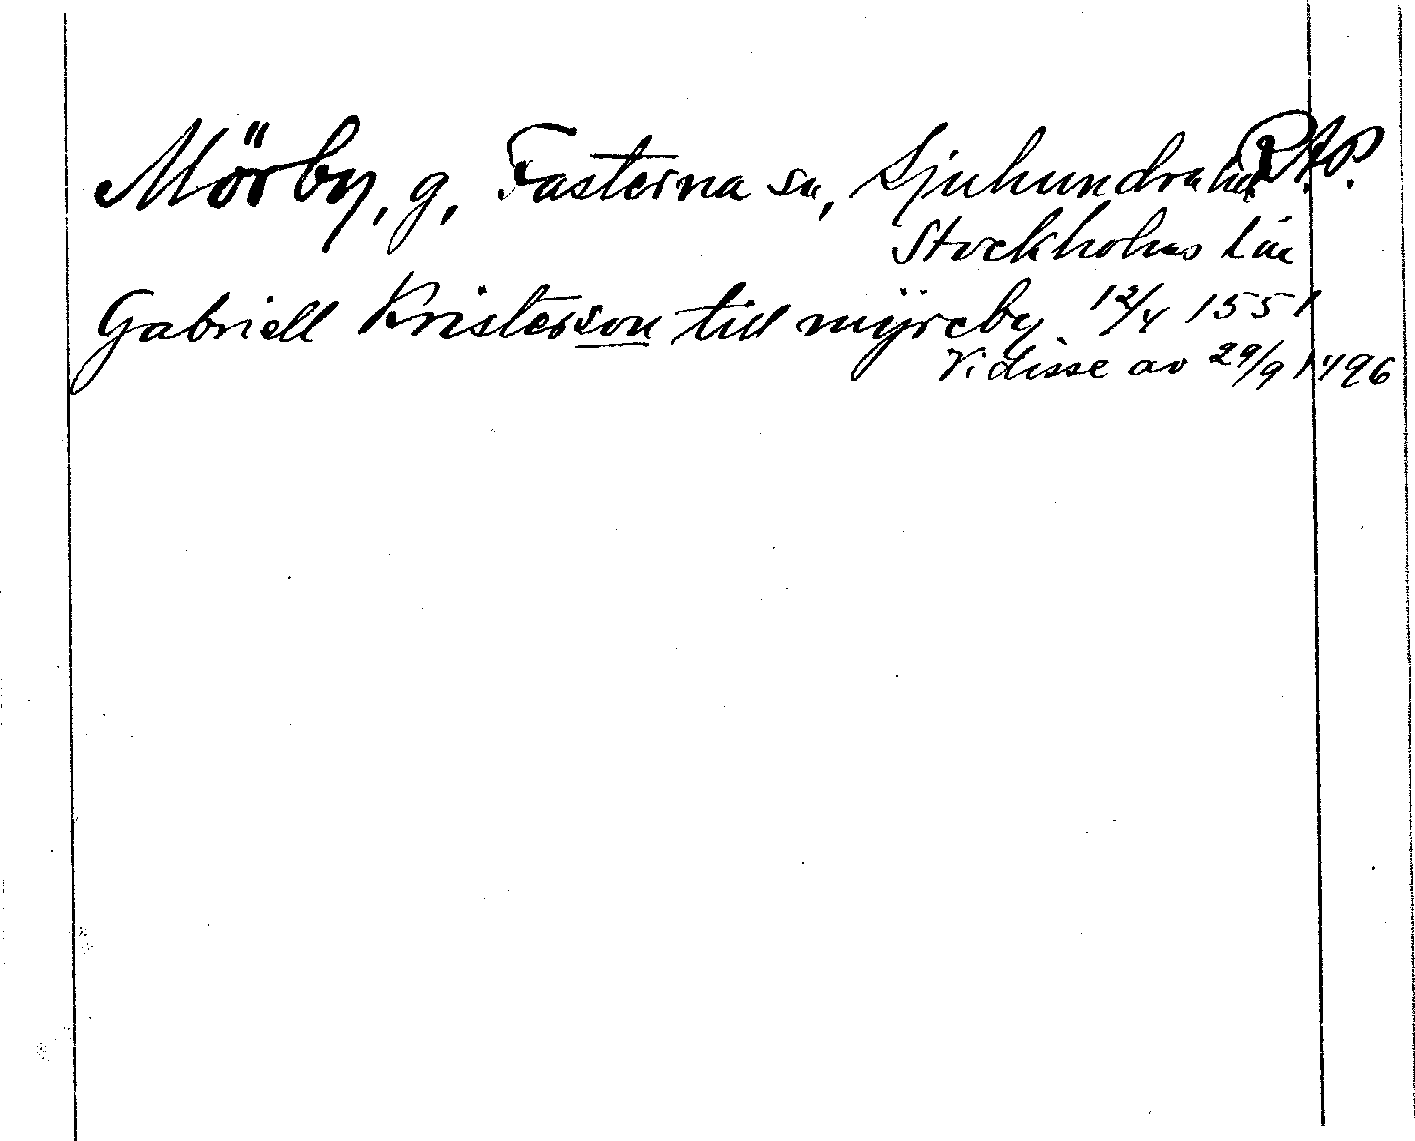 Mörby, g, Fasterna sn, Sjuhundra hd RAP.
Stockholms län
Gabriell Kristersson till mÿreby 12/4 1551
Vidisse av 29/9 1496